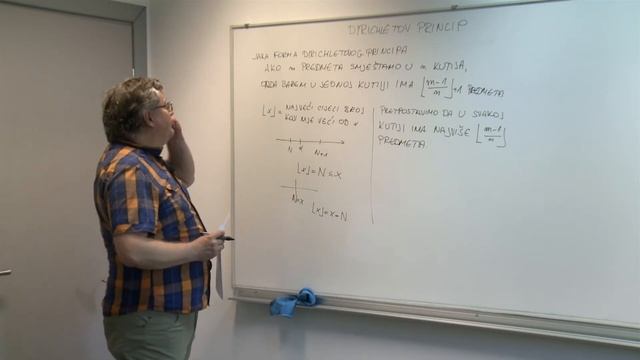 DIRICHLETOV PRINCIP
JAKA FORMA DIRICHLETOVOG PRINCIPA
AKO m PREDMETA SMJEŠTAMO U n KUTIJA,
ONDA BAREM U JEDNOJ KUTIJI IMA ⌊(m-1)/n⌋+1 PREDMETA
⌊x⌋ = NAJVEĆI CIJELI BROJ
KOJI NIJE VEĆI OD x
N x N+1
⌊x⌋=N≤x
N=x
⌊x⌋=x=N
PRETPOSTAVIMO DA U SVAKOJ
KUTIJI IMA NAJVIŠE ⌊(m-1)/n⌋
PREDMETA.